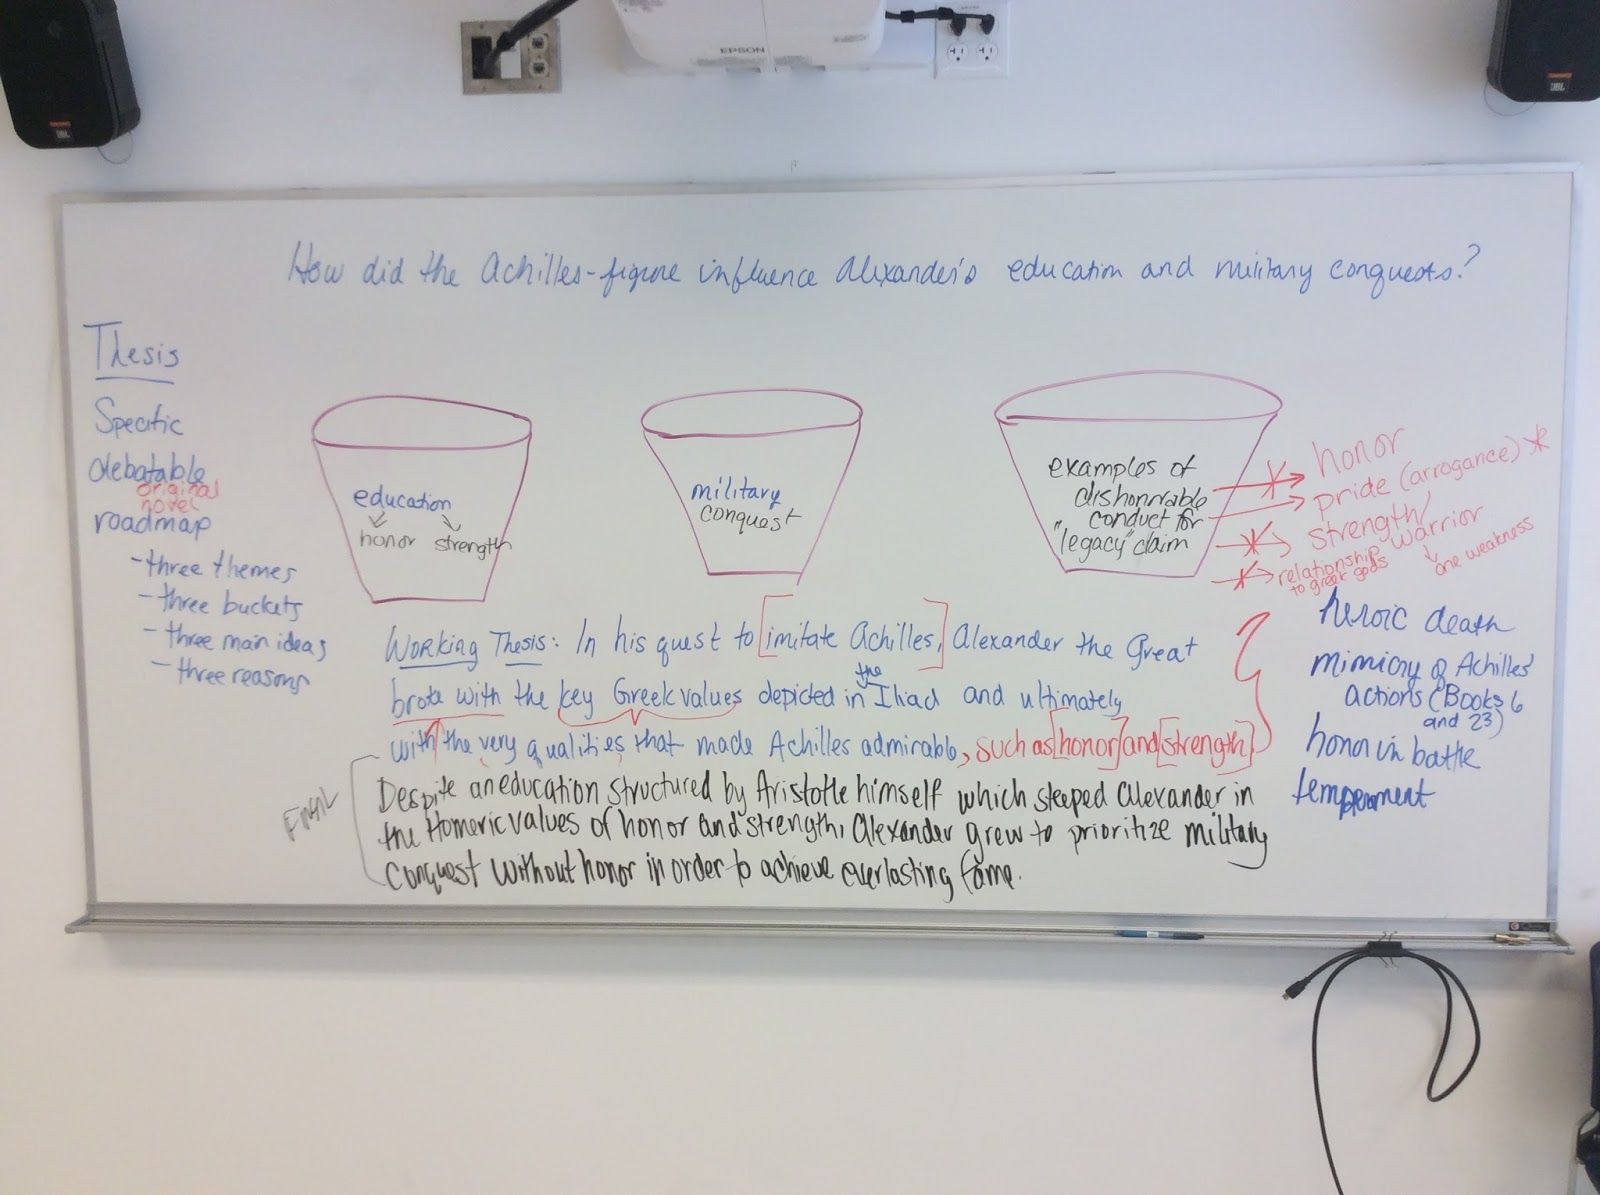 EPSON
JBL
JBL
How did the Achilles-figure influence Alexander's education and military conquests?
Thesis
Specific
debatable
original
novel
roadmap
-three themes
-three buckets
-three main ideas
-three reasons
education
honor strength
military
conquest
examples of
dishonorable
conduct for
"legacy" claim
honor
pride (arrogance) *
strength/
warrior
one weakness
relationship
to greek gods
heroic death
mimicry of Achilles'
actions (Books 6
and 23)
honor in battle
temperament
Working Thesis: In his quest to [imitate Achilles,] Alexander the Great
the
broke with the key Greek values depicted in Iliad and ultimately
with the very qualities that made Achilles admirable, such as [honor] and [strength]
FINAL
Despite an education structured by Aristotle himself which steeped Alexander in
the Homeric values of honor and strength, Alexander grew to prioritize military
conquest without honor in order to achieve everlasting fame.